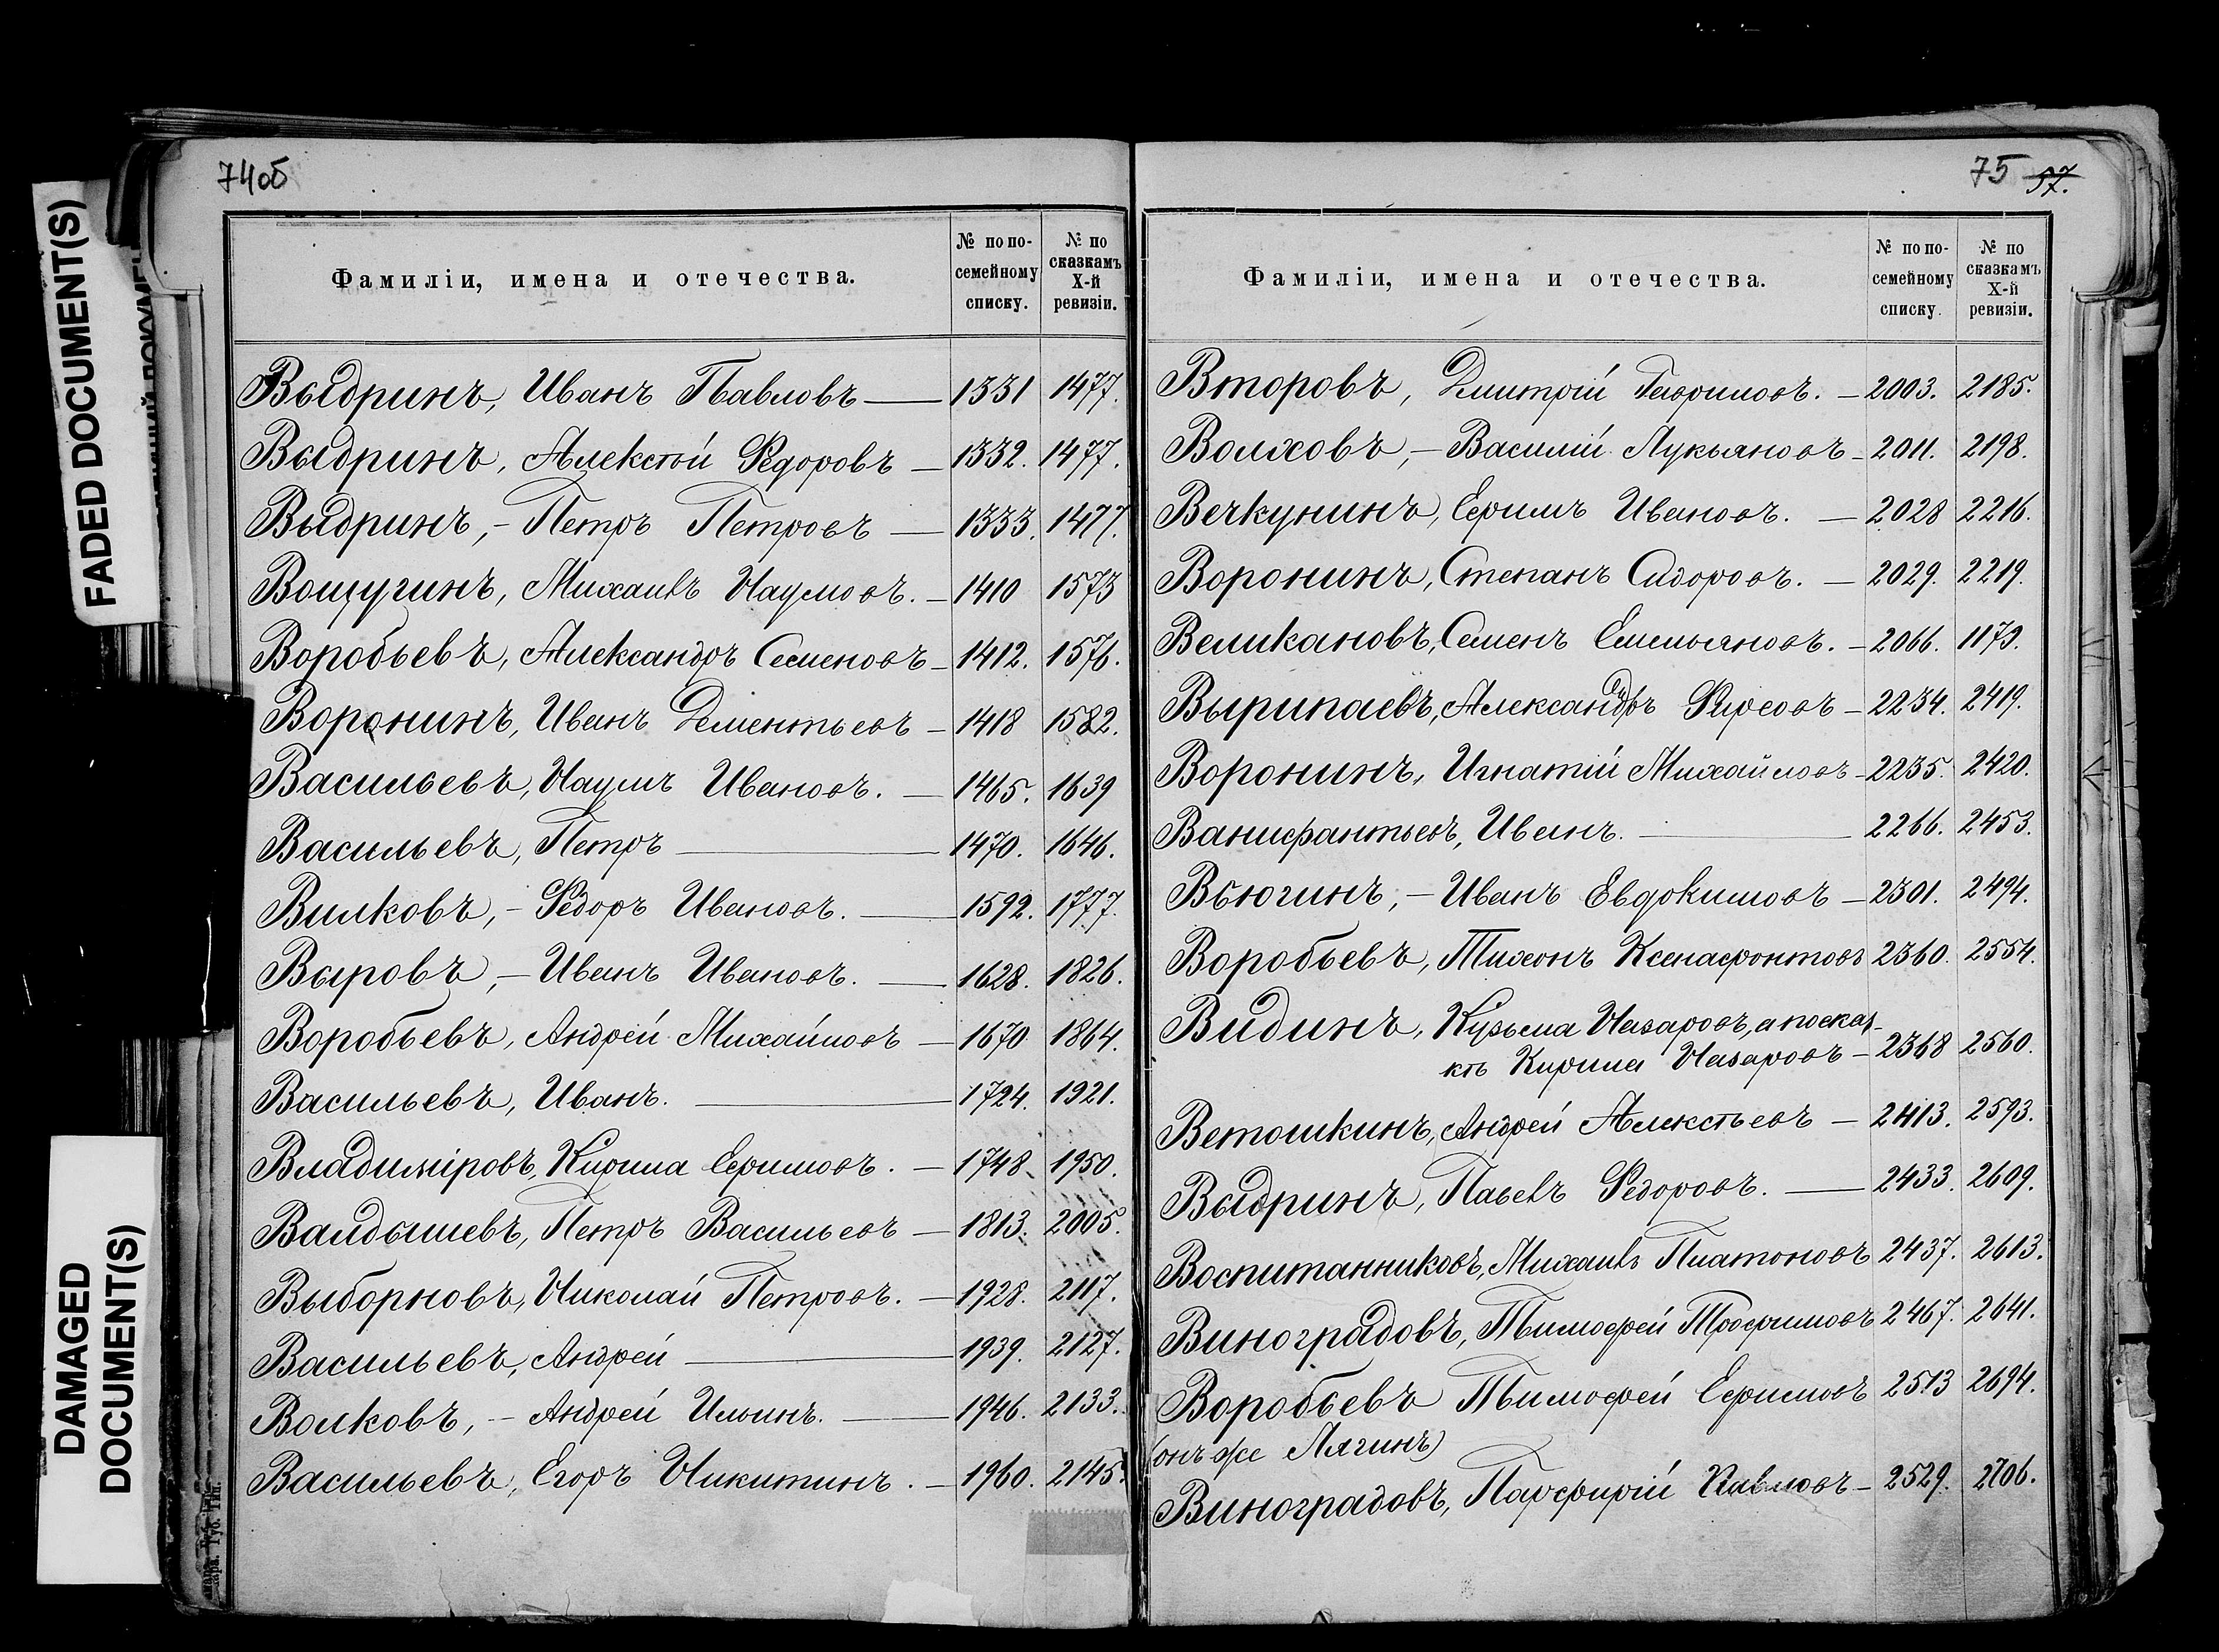 FADED DOCUMENT(S)
DAMAGED
DOCUMENT(S)
74об
Фамиліи, имена и отечества.
№ по по-
семейному
списку.
№ по
сказкамъ
X-й
ревизіи.
Выдринъ, Иванъ Павловъ — 1331 1477.
Выдринъ, Алексѣй Ѳедоровъ — 1332. 1477.
Выдринъ, – Петръ Петровъ — 1333. 1477.
Вощугинъ, Михаилъ Наумовъ. — 1410 1573
Воробьевъ, Александръ Семеновъ — 1412. 1576.
Воронинъ, Иванъ Дементьевъ — 1418 1582.
Васильевъ, Наумъ Ивановъ. — 1465. 1639
Васильевъ, Петръ — 1470. 1646.
Вилковъ, – Ѳедоръ Ивановъ. — 1592. 1777.
Выровъ, – Иванъ Ивановъ. — 1628. 1826.
Воробьевъ, Андрей Михайловъ — 1670 1864.
Васильевъ, Иванъ. — 1724. 1921.
Владиміровъ, Кирила Ефимовъ. — 1748 1950.
Валдышевъ, Петръ Васильевъ — 1813. 2005.
Выборновъ, Николай Петровъ. — 1928. 2117.
Васильевъ, Андрей — 1939. 2127.
Волковъ, – Андрей Ильинъ. — 1946. 2133.
Васильевъ, Егоръ Никитинъ. — 1960. 2145.
75 57.
Фамиліи, имена и отечества.
№ по по-
семейному
списку.
№ по
сказкамъ
X-й
ревизіи.
Второвъ, Дмитрій Гавриловъ. — 2003. 2185.
Волховъ, – Василій Лукьяновъ — 2011. 2198.
Вечкунинъ, Ефимъ Ивановъ. — 2028 2216.
Воронинъ, Степанъ Сидоровъ. — 2029. 2219.
Великановъ, Семенъ Емельяновъ. — 2066. 1179.
Вырипаевъ, Александръ Фирсовъ — 2234. 2419.
Воронинъ, Игнатій Михайловъ — 2235. 2420.
Ванифантьевъ, Иванъ. — 2266. 2453.
Вьюгинъ, – Иванъ Евдокимовъ — 2301. 2494.
Воробьевъ, Тихонъ Ксенафонтовъ 2360. 2554.
Видинъ, Кузьма Назаровъ, а по сказ-
кѣ Кирила Назаровъ — 2368 2560.
Ветошкинъ, Андрей Алексѣевъ — 2413. 2593.
Выдринъ, Павелъ Ѳедоровъ. — 2433. 2609.
Воспитанниковъ, Михаилъ Платоновъ 2437. 2613.
Виноградовъ, Тимофей Трофимовъ 2467. 2641.
Воробьевъ Тимофей Ефимовъ 2513 2694.
(онъ же Лягинъ)
Виноградовъ, Парфирій Павловъ — 2529. 2706.